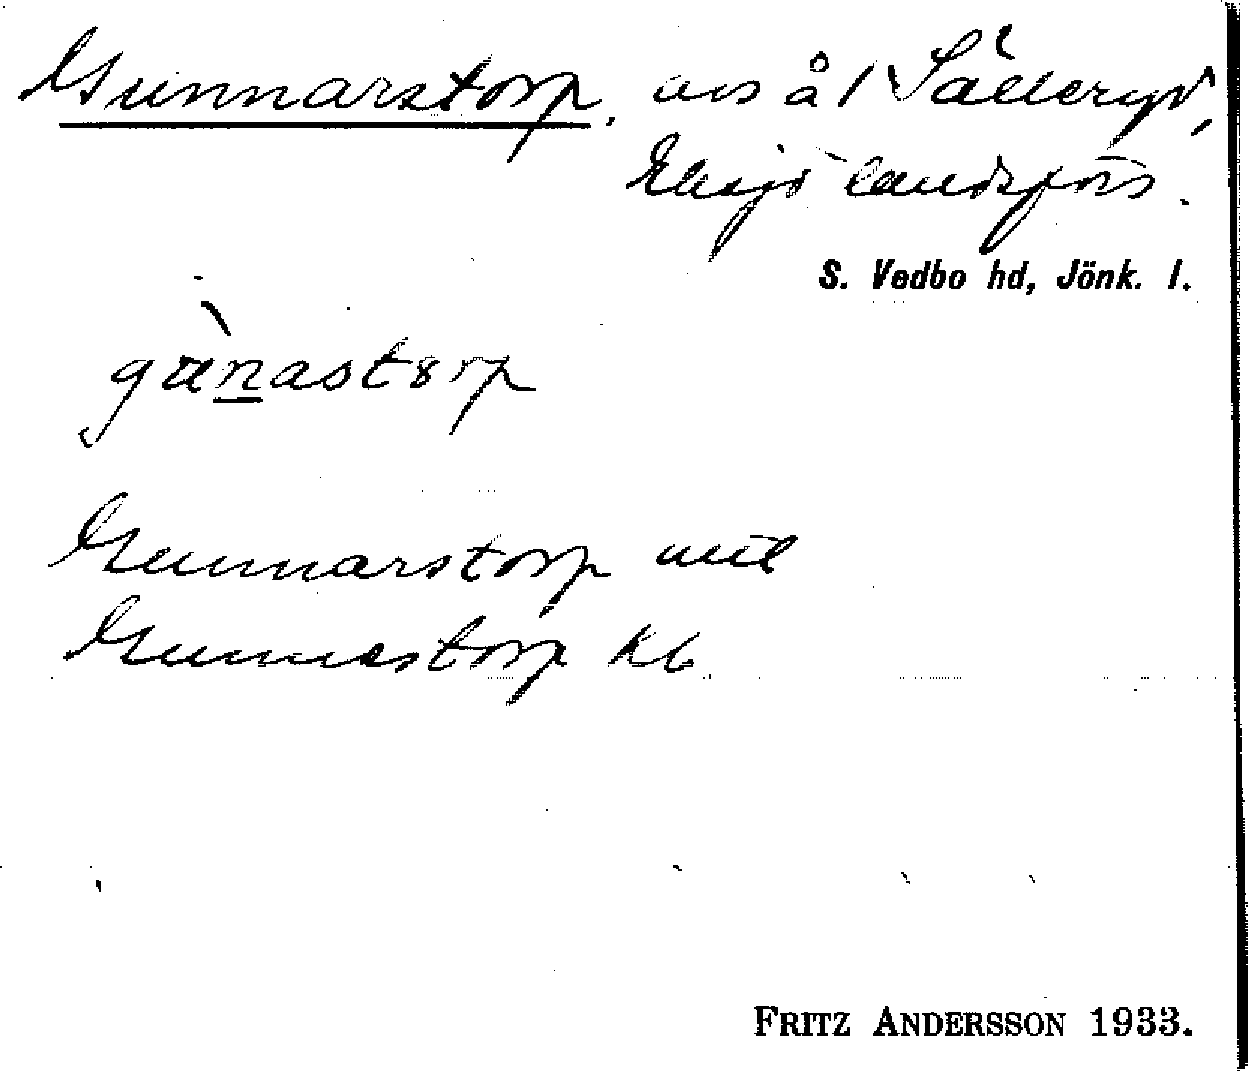 Gunnarstorp, avs å 1 Sälleryd,
Eksjö landsförs.
S. Vedbo hd, Jönk. l.
gunastorp
Gunnarstorp mtl
Gunnestorp kb
FRITZ ANDERSSON 1933.